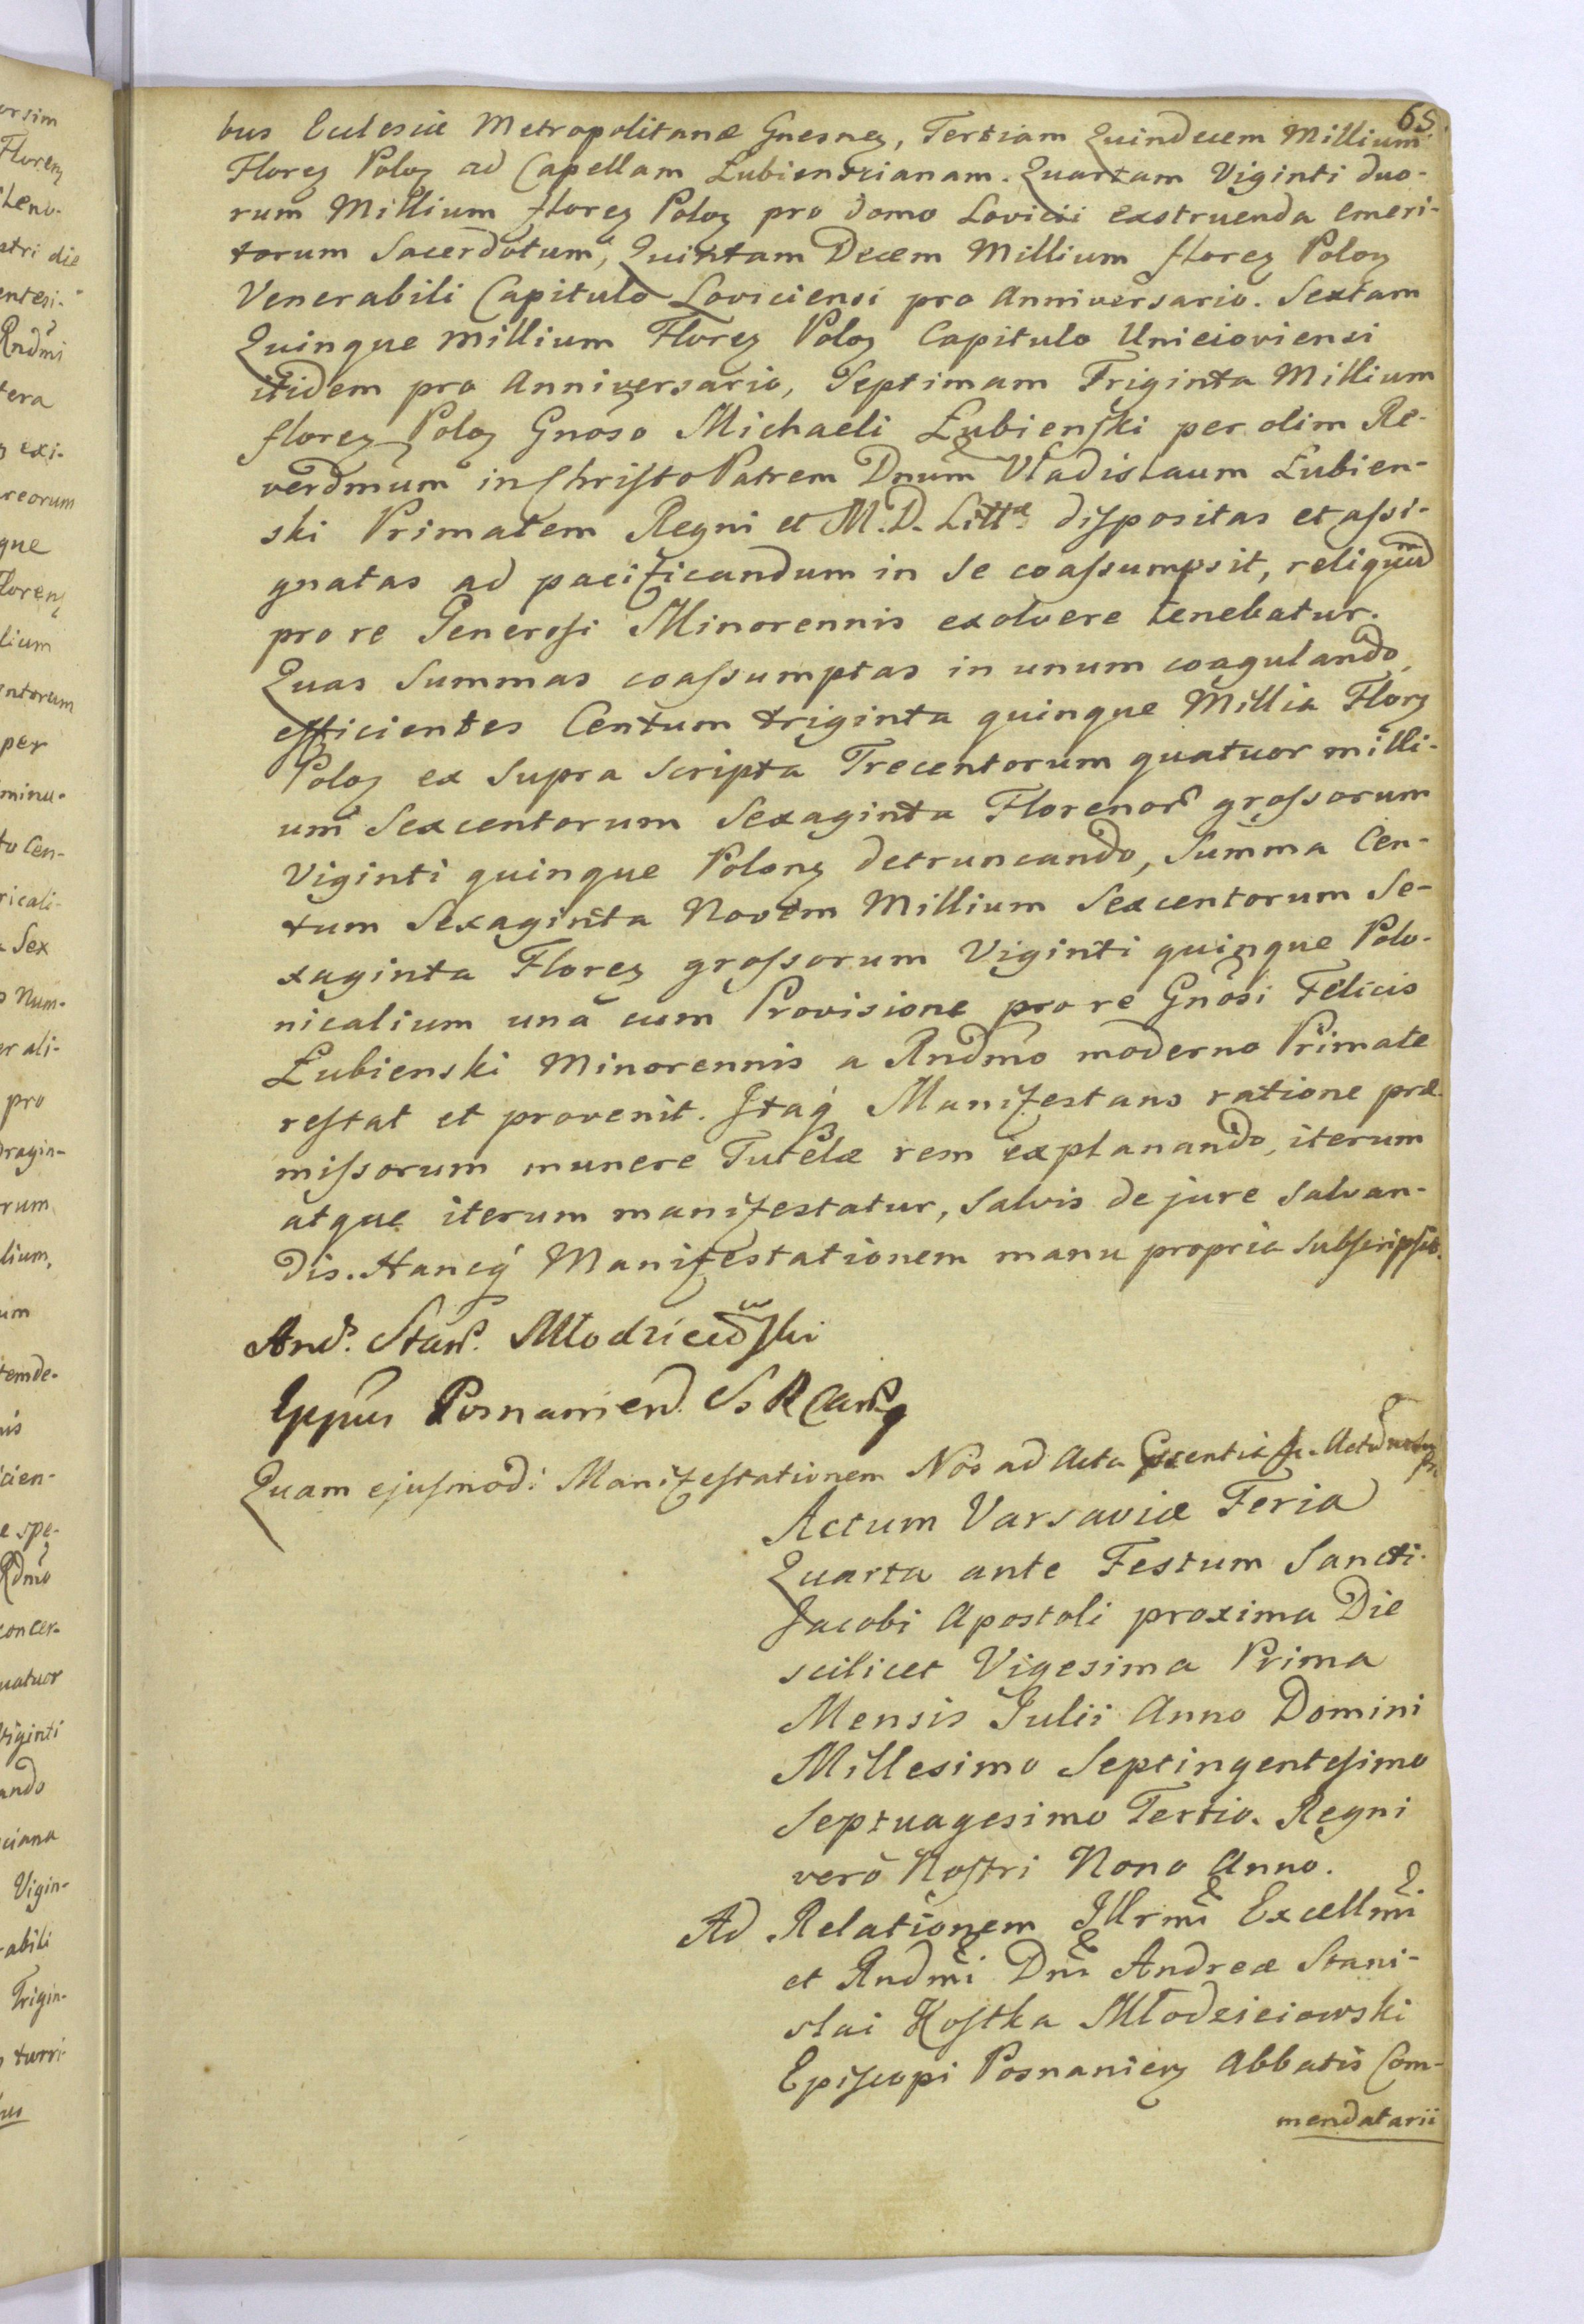 65.
bus Eccclesiæ Metropolitanæ Gnesnen, Tertiam Quindecem Millium
Floren Polon ad Capellam Lubienscianam. Quartam Viginti duo-
rum Millium floren Polon pro domo Lovicii exstruenda emeri-
torum Sacerdotum, Quintam Decem Millium floren Polon
Venerabili Capitulo Loviciensi pro Anniversario. Sextam
Quinque Millium Floren Polon Capitulo Unieioviensi
itidem pro Anniversario, Septimam Triginta Millium
floren Polon Gnoso Michaeli Łubieński per olim Re-
verdmum in Christo Patrem Dnum Vladislaum Łubien-
ski Primatem Regni et M. D. Littæ dispositas et assi-
gnatas ad pacificandum in se coassumpsit, reliquum
pro re Generosi Minorennis exolvere tenebatur.
Quas Summas coassumptas in unum coagulando,
efficientes Centum triginta quinque Millia Flor
Polon ex supra scripta Trecentorum quatuor milli-
um Sexcentorum Sexaginta Florenor grossorum
Viginti quinque Polon detruncando, Summa Cen-
tum Sexaginta Novem Millium Sexcentorum Se-
xaginta Floren grossorum Viginti quinque Polo-
nicalium unà cum Provisione pro re Gnosi Felicis
Łubienski Minorennis a Rndmo moderno Primate
restat et provenit. Itaq Manifestans ratione præ-
missorum munere Tutelæ rem explanando, iterum
atque iterum manifestatur, Salvis de jure salvan-
dis. Hancq Manifestationem manu propria subscripsit.
And. Stan. Młodzieiowski
Eppus Posnanien. S. R. Canc
Quam ejusmodi Manifestationem Nos ad Acta
Actum Varsaviæ Feria
Quarta ante Festum Sancti
Jacobi Apostoli proxima Die
scilicet Vigesima Prima
Mensis Julii Anno Domini
Millesimo Septingentesimo
Septuagesimo Tertio. Regni
verò Nostri Nono Anno.
Ad Relationem Illrmi Excellmi
et Rndmi Dni Andreæ Stani-
slai Kostka Młodzieiowski
Episcopi Posnanien Abbatis Com-
mendatarii